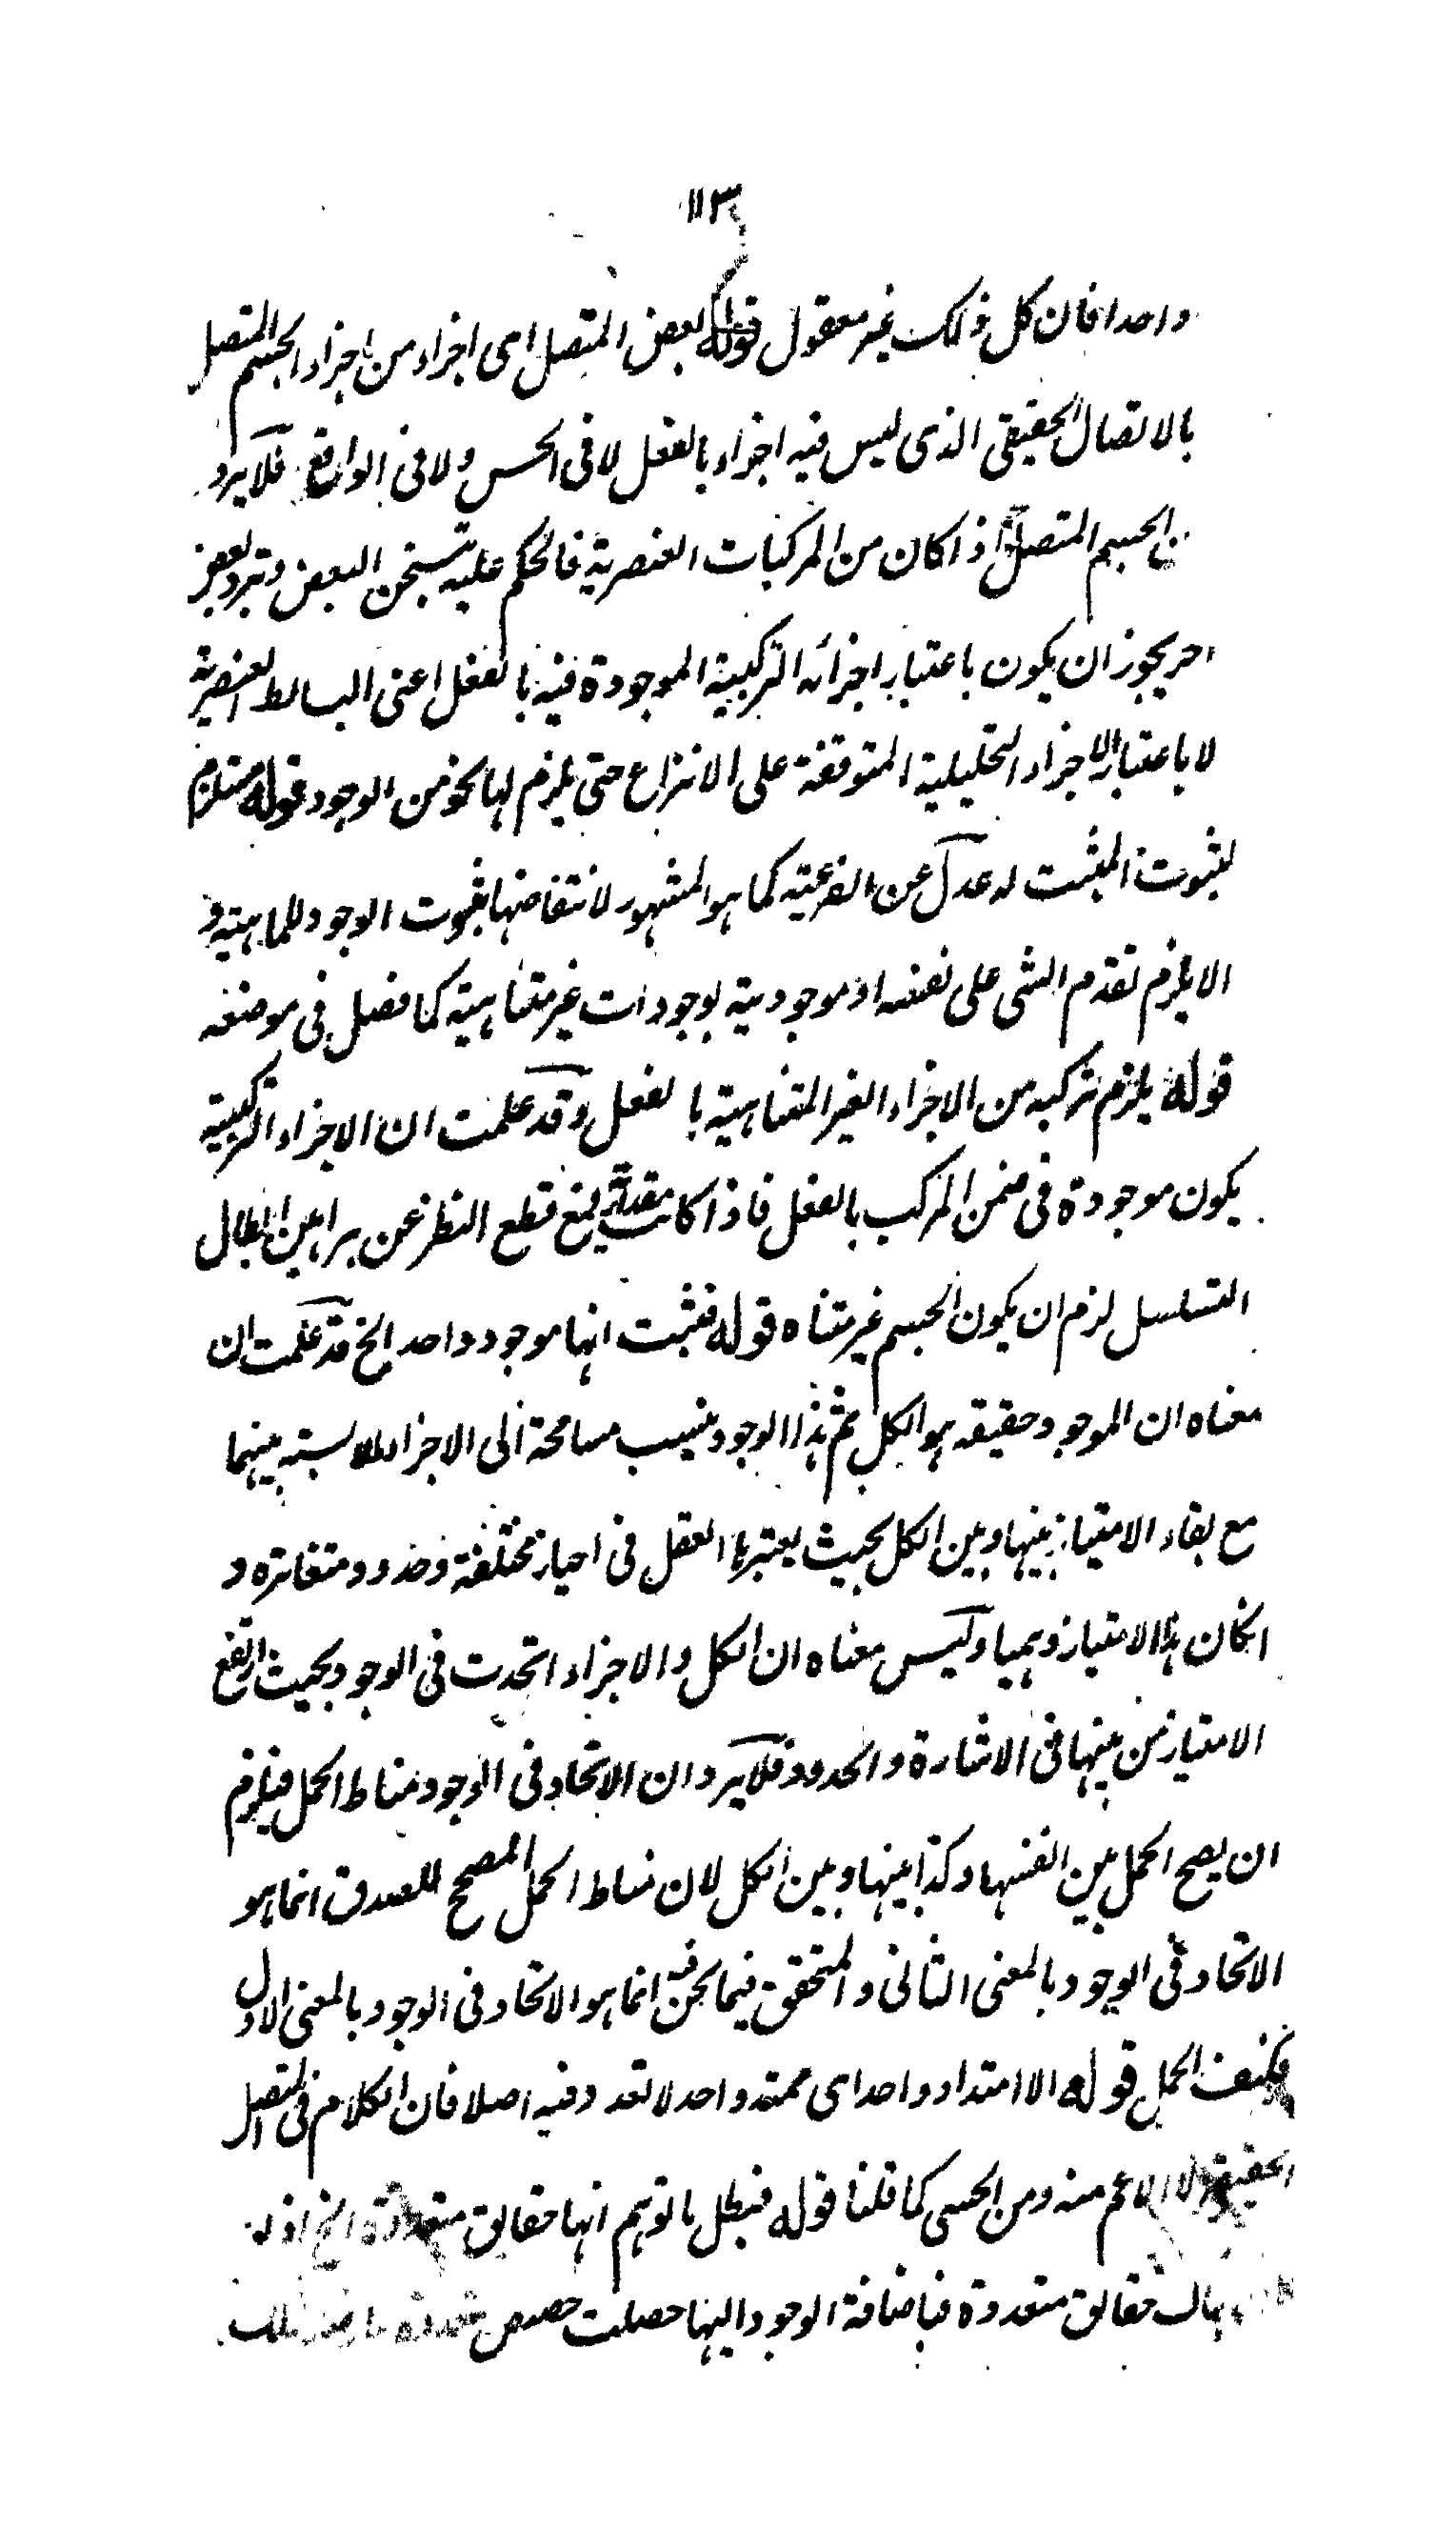 ١١٣
واحدا فان كل ذلك غير معقول قوله بعض المتصل اى اجزاء من اجزاء الجسم المتصل
بالاتصال الحقيقى الذى ليس فيه اجزاء بالفعل لا فى الحس ولا فى الواقع فلا يرد
الجسم المتصل اذا كان من المركبات العنصرية فالحكم عليه بتسخن البعض وتبرد بعض
اخر يجوز ان يكون باعتبار اجزائه التركيبية الموجودة فيه بالفعل اعنى البسائط العنصرية
لا باعتبار الاجزاء التحليلية المتوقفة على الانتزاع حتى يلزم لها نحو من الوجود قوله مستلزم
لثبوت المثبت له عدل عن الفرعية كما هو المشهور لانتقاضها بثبوت الوجود للماهية و
الا يلزم تقدم الشى على نفسه او موجودية بوجودات غير متناهية كما فصل فى موضعه
قوله يلزم تركبه من الاجزاء الغير المتناهية بالفعل وقد علمت ان الاجزاء التركيبية
يكون موجودة فى ضمن المركب بالفعل فاذا كانت فمع قطع النظر عن براهين ابطال
التسلسل لزم ان يكون الجسم غير متناه قوله فثبت انها موجود واحد الخ قد علمت ان
معناه ان الموجود حقيقه هو الكل ثم هذا الوجود ينسب مسامحة الى الاجزاء بينهما
مع بقاء الامتياز بينها وبين الكل بحيث يعتبرها العقل فى احياز مختلفة وحدود متغائرة و
انكان هذا الامتياز وهميا وليس معناه ان الكل والاجزاء اتحدت فى الوجود بحيث ارتفع
الامتياز من بينها فى الاشارة والحدود فلا يرد ان الاتحاد فى الوجود مناط الحمل فيلزم
ان يصح الحمل بين انفسها وكذا بينها وبين الكل لان مناط الحمل المصحح للصدق انما هو
الاتحاد فى الوجود بالمعنى الثانى والمتحقق فيما نحن فيه انما هو الاتحاد فى الوجود بالمعنى الاول
فكيف الحمل قوله الا امتداد واحد اى ممتد واحد لا تعدد فيه اصلا فان الكلام فى المتصل
الحقيقى لا الاعم منه ومن الحسى كما قلنا قوله فبطل ما توهم انها حقائق متعددة الخ اذ لو
هناك حقائق متعددة فباضافة الوجود اليها حصلت حصص